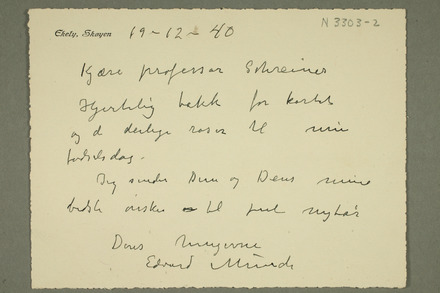 Ekely, Skøyen 19-12-40
N 3303-2
Kjære professor Schreiner
Hjertelig takk for kortet
og de deilige roser til min
fødselsdag.
Jeg sender Dem og Deres mine
bedste ønsker til nytår
Deres
Edvard Munch